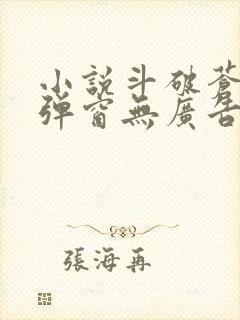 小說斗破蒼
彈窗無廣告
張海再